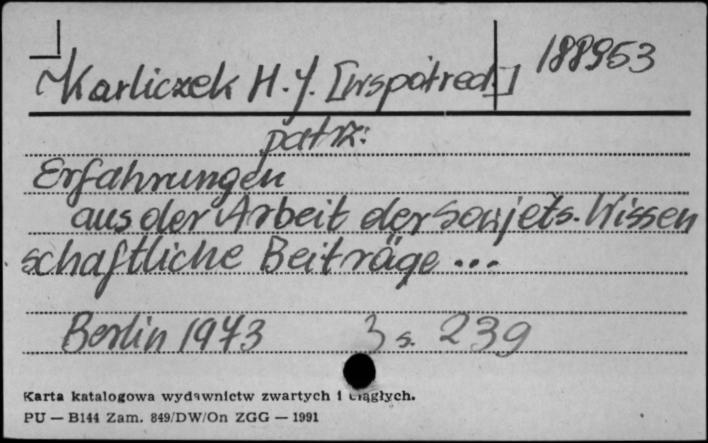 188953
Karliczek H. J. [współred.]
patrz:
Erfahrungen
aus der Arbeit der Sowjets. Wissen
schaftliche Beiträge ...
Berlin 1973 3 s. 239
Karta katalogowa wydawnictw zwartych i ciągłych.
PU — B144 Zam. 849/DW/On ZGG — 1991